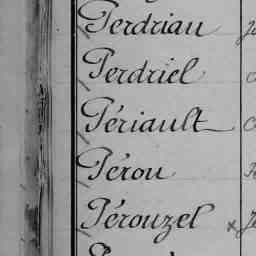 Perdriau
Perdriel
Périault
Pérou
Pérouzel x